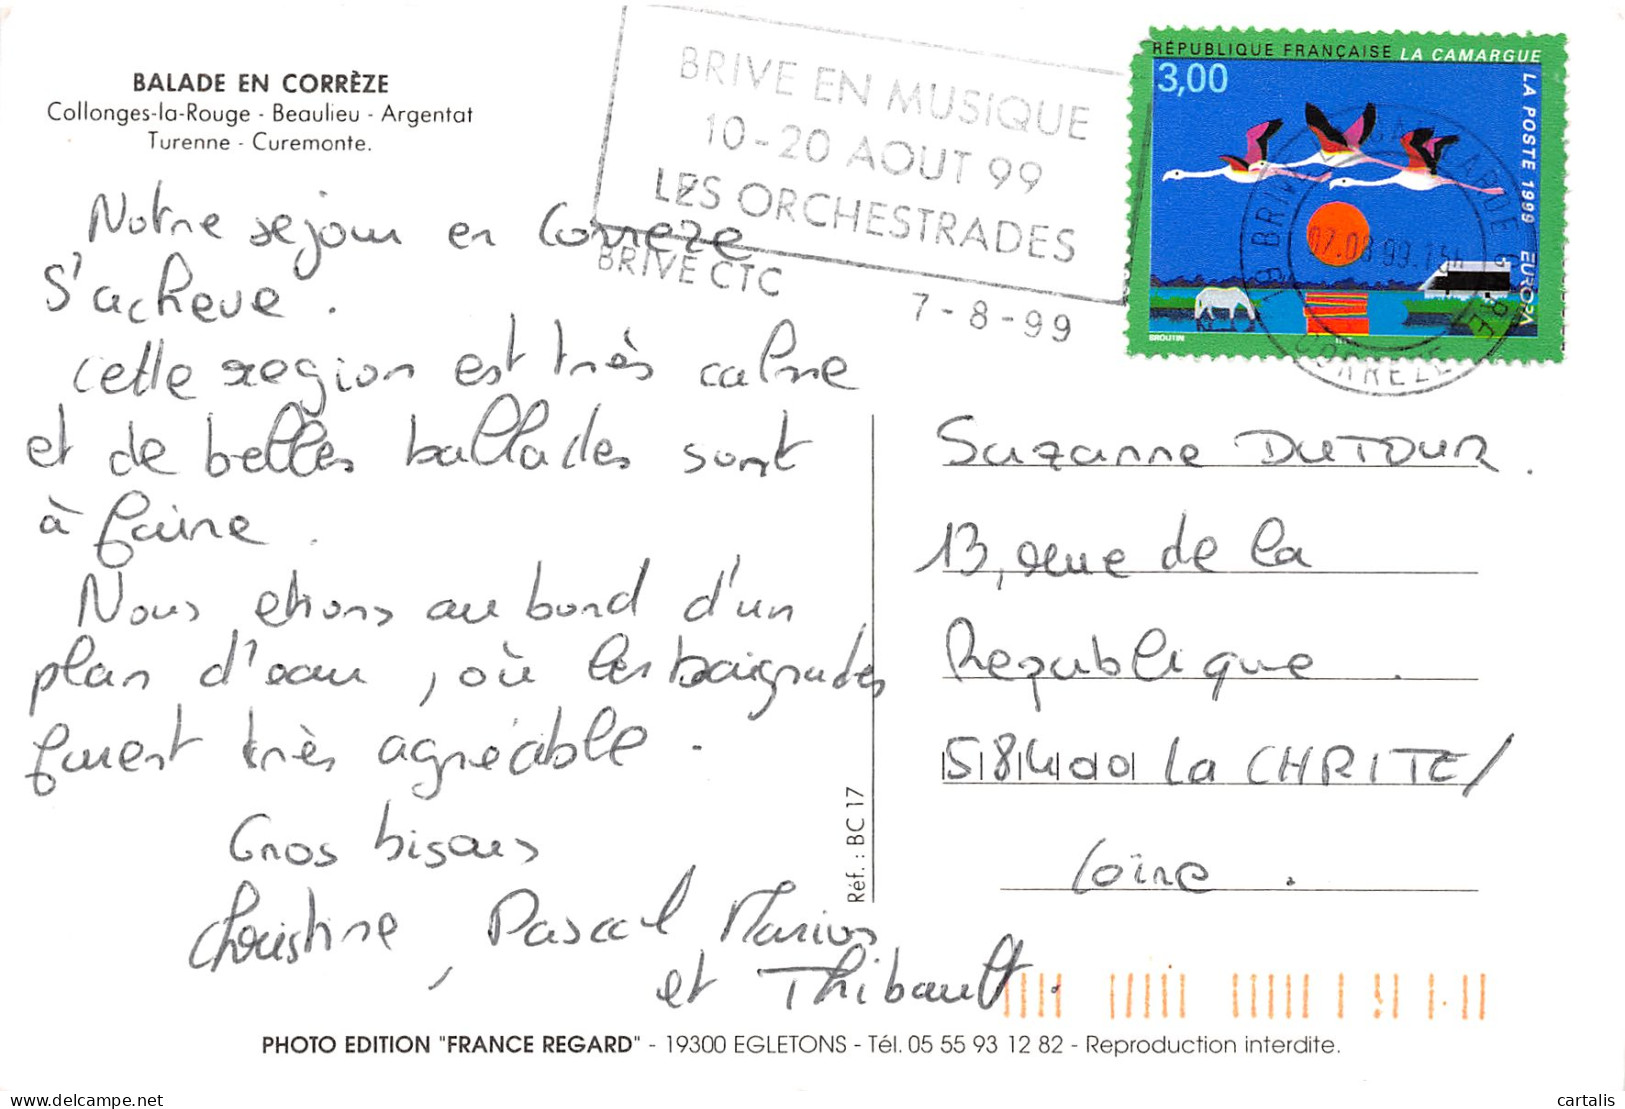 BALADE EN CORRÈZE
Collonges-la-Rouge - Beaulieu - Argentat
Turenne - Curemonte.
BRIVE EN MUSIQUE
10-20 AOUT 99
LES ORCHESTRADES
BRIVE CTC
7-8-99
RÉPUBLIQUE FRANÇAISE LA CAMARGUE
3,00
LA POSTE 1999 EUROPA
BROUTIN
07.08.99.15H
CORREZE
Notre sejour en Correze
s'acheve.
cette region est très calme
et de belles ballades sont
à faire.
Nous etions au bord d'un
plan d'eau, où les baignades
furent très agréable.
Gros bisous
Christine, Pascal Marius
et Thibault.
Suzanne DUTOUR.
13, rue de la
Republique.
58400 La CHRITE/
Loire.
Réf. : BC 17
PHOTO EDITION "FRANCE REGARD" - 19300 EGLETONS - Tél. 05 55 93 12 82 - Reproduction interdite.
cartalis